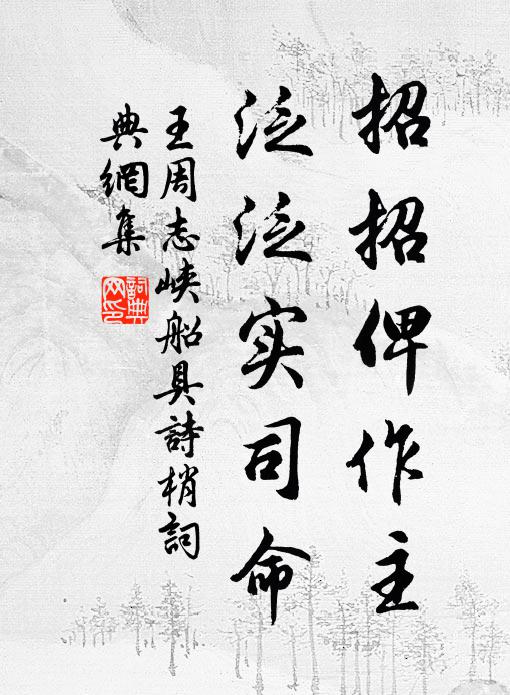 招招俾作主
泛泛实司命
王周志峡船具詩梢詞
典網集
詞典
网印